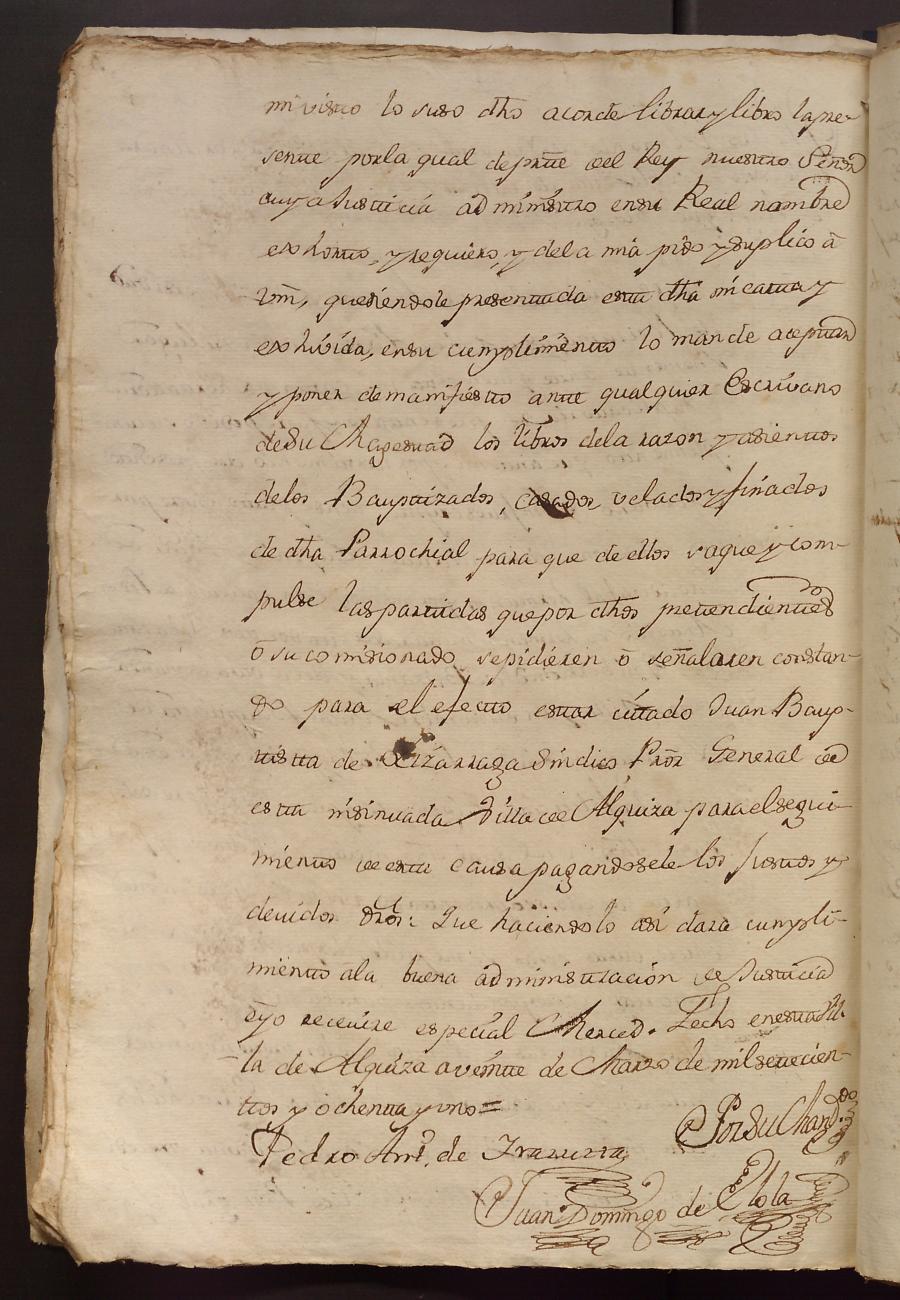 mi visto lo suso dho acorde librar y libro la pre-
sente por la qual de prte del Rey nuestro Señor
cuya Justicia administro en su Real nombre
exhorto, y requiero, y de la mia pido y suplico á
Vm, que siendole presentada esta dha mi carta y
exhivida, en su cumplimiento lo mande aceptar
y poner de manifiesto ante qualquier Escrivano
de su Magestad los libros de la razon y asientos
de los Bauptizados, casados, velados y finados
de dha Parrochial para que de ellos saque y com-
pulse las partidas que por dhos pretendientes
ó su comisionado, se pidieren ó señalaren constan-
do para el efecto estar citado Juan Baup-
tista de Lizarraga Sindico Pror General de
esta insinuada Villa de Alquiza para el segui-
miento de esta causa pagandosele los Justos y
devidos dros: Que haciendolo asi dara cumpli-
miento á la buena administración de Justicia
é yo recevire especial Merced. Fecho en esta Vi-
lla de Alquiza a veinte de Marzo de mil setecien-
tos y ochenta y uno=
Pedro Anto. de Irazusta
Por su Mando
Juan Domingo de Elola